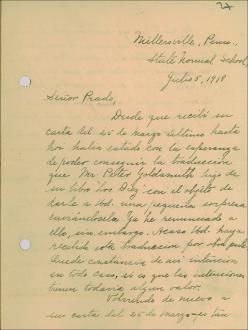 27
Millersville, Penna.,
State Normal School,
Julio 5, 1918
Señor Prado,
Desde que recibí su
carta del 25 de marzo último hasta
hoi habia estado con la esperanza
de poder conseguir la traducción
que Mr. Peter Goldsmith hizo de
su libro con el objeto de
darle a Ud. una pequeña sorpresa
enviándosela. Ya he renunciado a
ello, sin embargo. Acaso Ud. haya
recibido esta traducción por otra parte.
Quede constancia de mi intención
en todo caso, si es que las intenciones
tienen todavía algun valor.
Volviendo de nuevo a
su carta del 25 de marzo, es tan